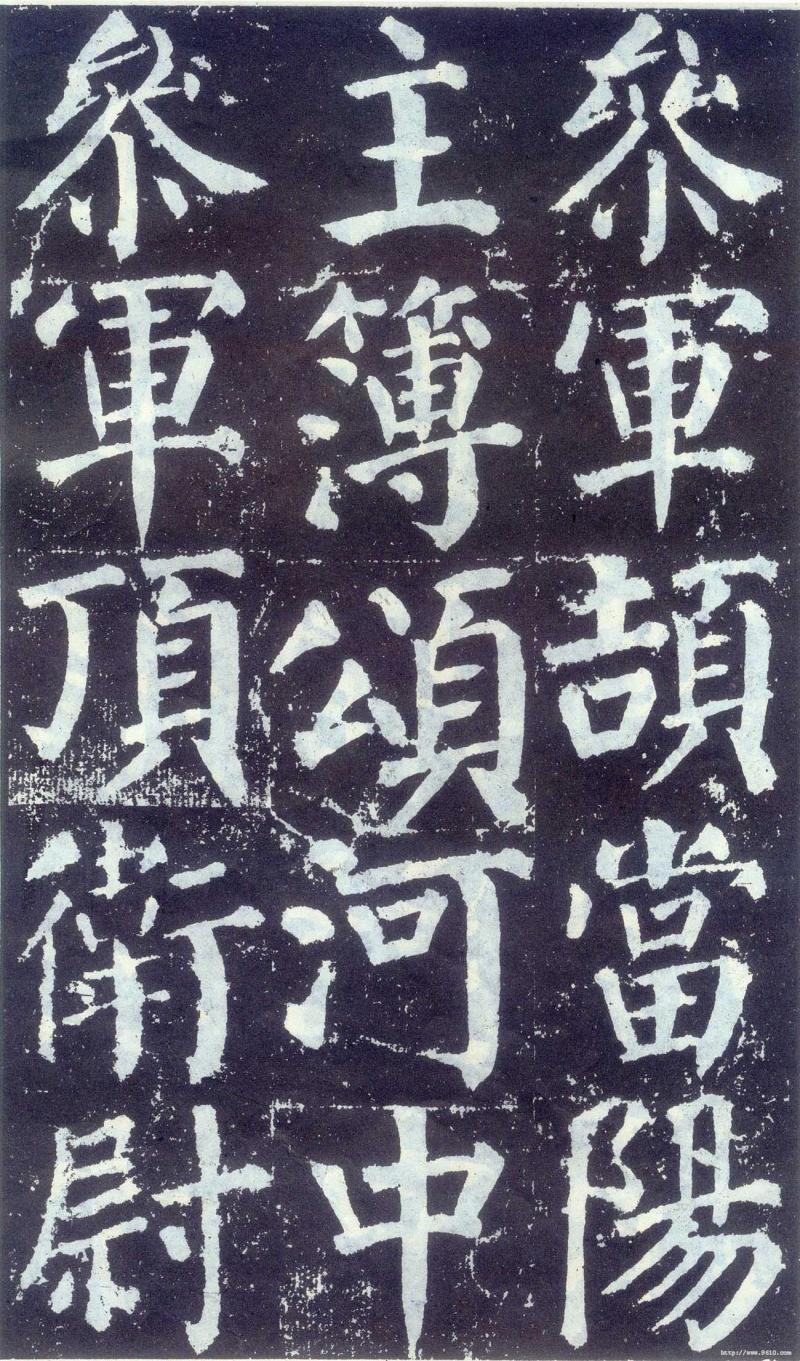 參軍頡當陽
主簿頌河中
參軍頂衛尉
http://www.9610.com